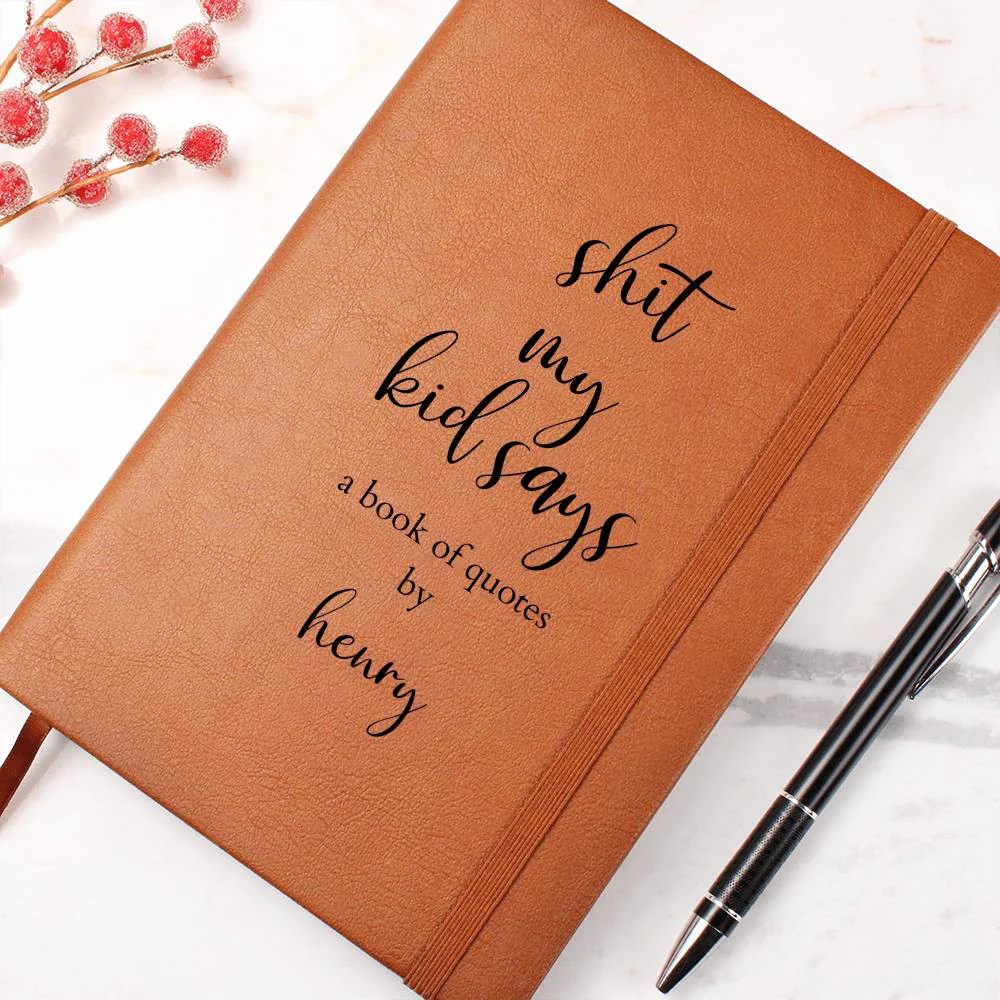 shit
my
kid says
a book of quotes
by
henry